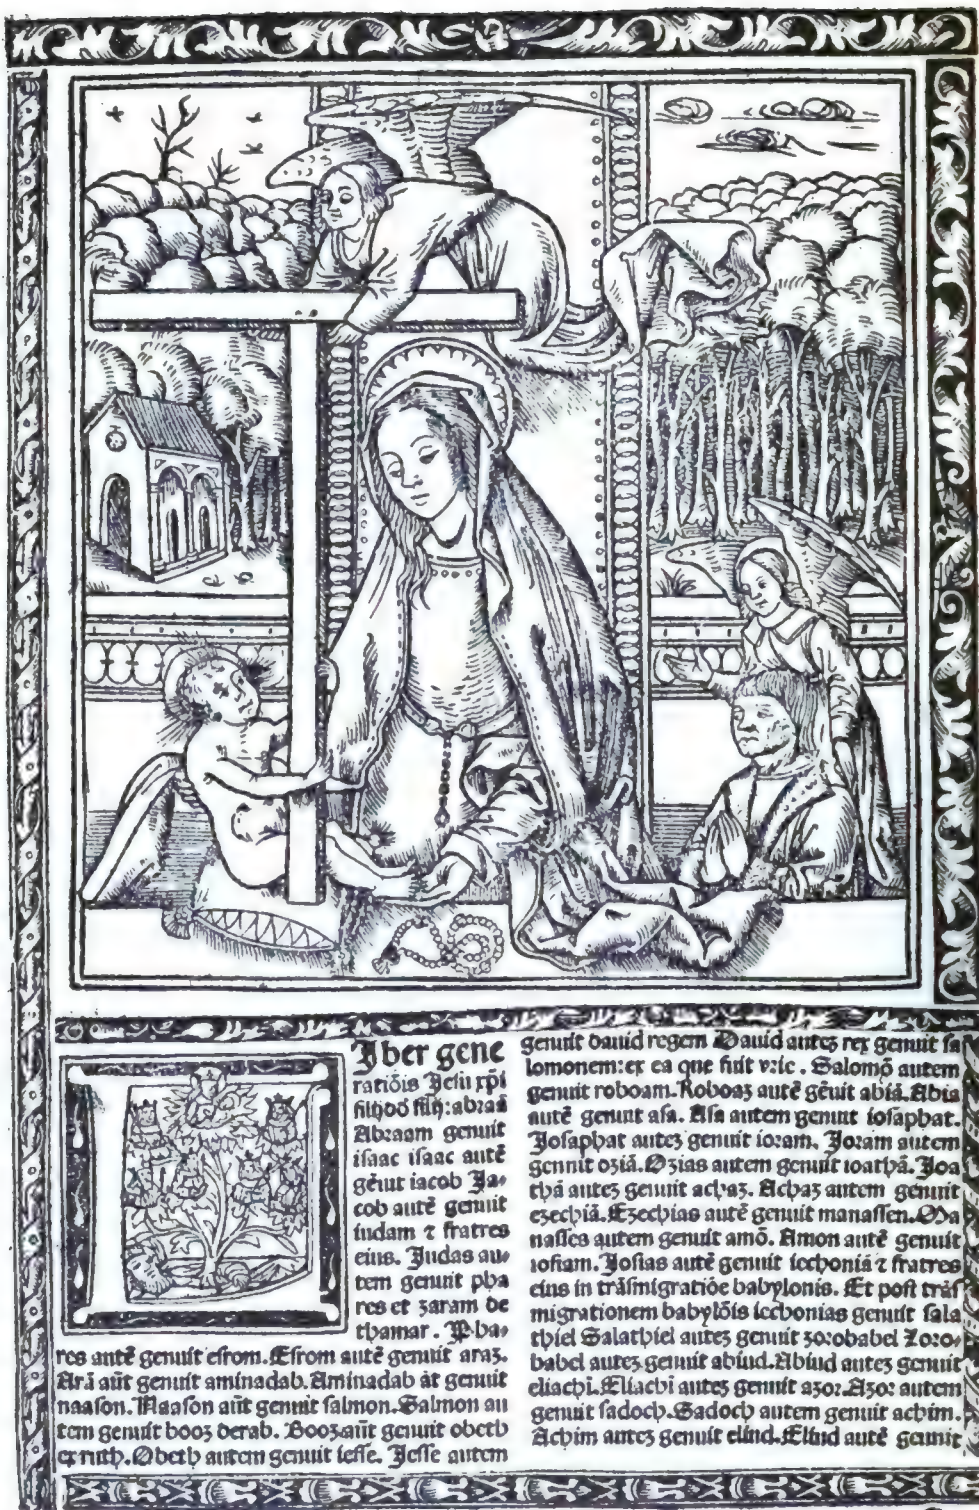 Iber gene
ratiōis Jesu xp̄i
filij dd̄ filij: abraā
Abraam genuit
isaac isaac autē
gēuit iacob Ja-
cob autē genuit
iudam ⁊ fratres
eius. Judas au-
tem genuit pha
res et zaram de
thamar. Pha-
res autē genuit esrom. Esrom autē genuit araz.
Arā aūt genuit aminadab. Aminadab āt genuit
naason. Naason aūt genuit salmon. Salmon au
tem genuit booz derab. Booz aūt genuit obeth
ex ruth. Obeth autem genuit iesse. Jesse autem
genuit dauid regem Dauid autez rex genuit sa
lomonem: ex ea que fuit vrie. Salomō autem
genuit roboam. Roboaz autē gēuit abiā. Abia
autē genuit asa. Asa autem genuit iosaphat.
Josaphat autez genuit ioram. Joram autem
genuit oziā. Ozias autem genuit ioathā. Joa
thā autez genuit achaz. Achaz autem genuit
ezechiā. Ezechias autē genuit manassen. Ma
nasses autem genuit amō. Amon autē genuit
iosiam. Josias autē genuit iechoniā ⁊ fratres
eius in trāsmigratiōe babylonis. Et post trāf
migrationem babylōis iechonias genuit sala
thiel Salathiel autez genuit zorobabel Zoro-
babel autez genuit abiud. Abiud autez genuit
eliachi. Eliachi autez genuit azor. Azor autem
genuit sadoch. Sadoch autem genuit achim.
Achim autez genuit eliud. Eliud autē genuit